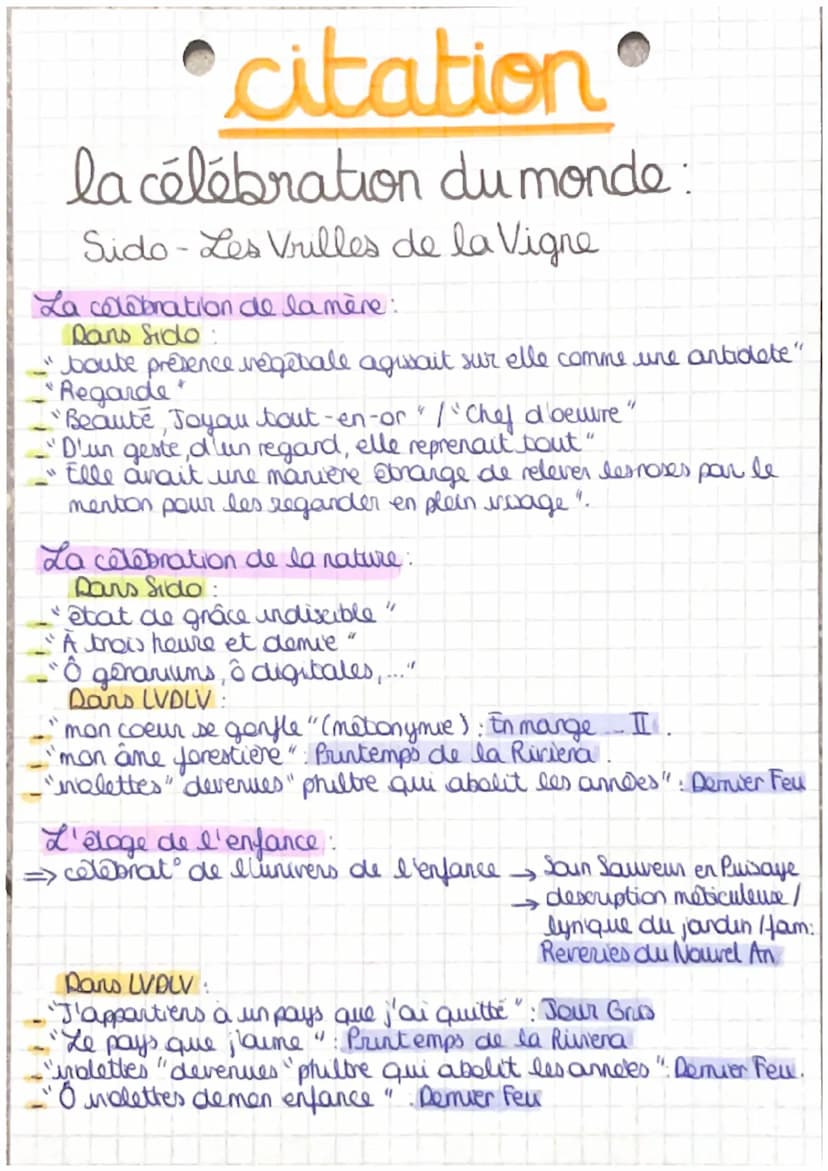 citation
la célébration du monde :
Sido - Les Vrilles de la Vigne
La célébration de la mère :
Dans Sido :
_ "toute présence végétale agissait sur elle comme une antidote"
_ "Regarde"
_ "Beauté, Joyau tout-en-or" / "Chef d'oeuvre"
_ "D'un geste, d'un regard, elle reprenait tout"
_ "Elle avait une manière étrange de relever les roses par le
menton pour les regarder en plein visage".
La célébration de la nature :
Dans Sido :
_ "état de grâce indiscible"
_ "À trois heure et demie"
_ "Ô géraniums, ô digitales,..."
Dans LVDLV :
_ "mon coeur se gonfle" (métonymie) : En marge _ II.
_ "mon âme forestière" : Printemps de la Riviera.
_ "violettes" devenues "philtre qui abolit les années" : Dernier Feu
L'éloge de l'enfance :
⇒ célébrat° de l'univers de l'enfance → Sain Sauveur en Puisaye
→ description méticuleuse /
lyrique du jardin / fam:
Reveries du Nouvel An
Dans LVDLV :
_ "J'appartiens à un pays que j'ai quitté" : Jour Gris
_ "Le pays que j'aime" : Printemps de la Riviera
_ "violettes" devenues "philtre qui abolit les années" : Dernier Feu.
_ "Ô violettes de mon enfance" . Dernier Feu